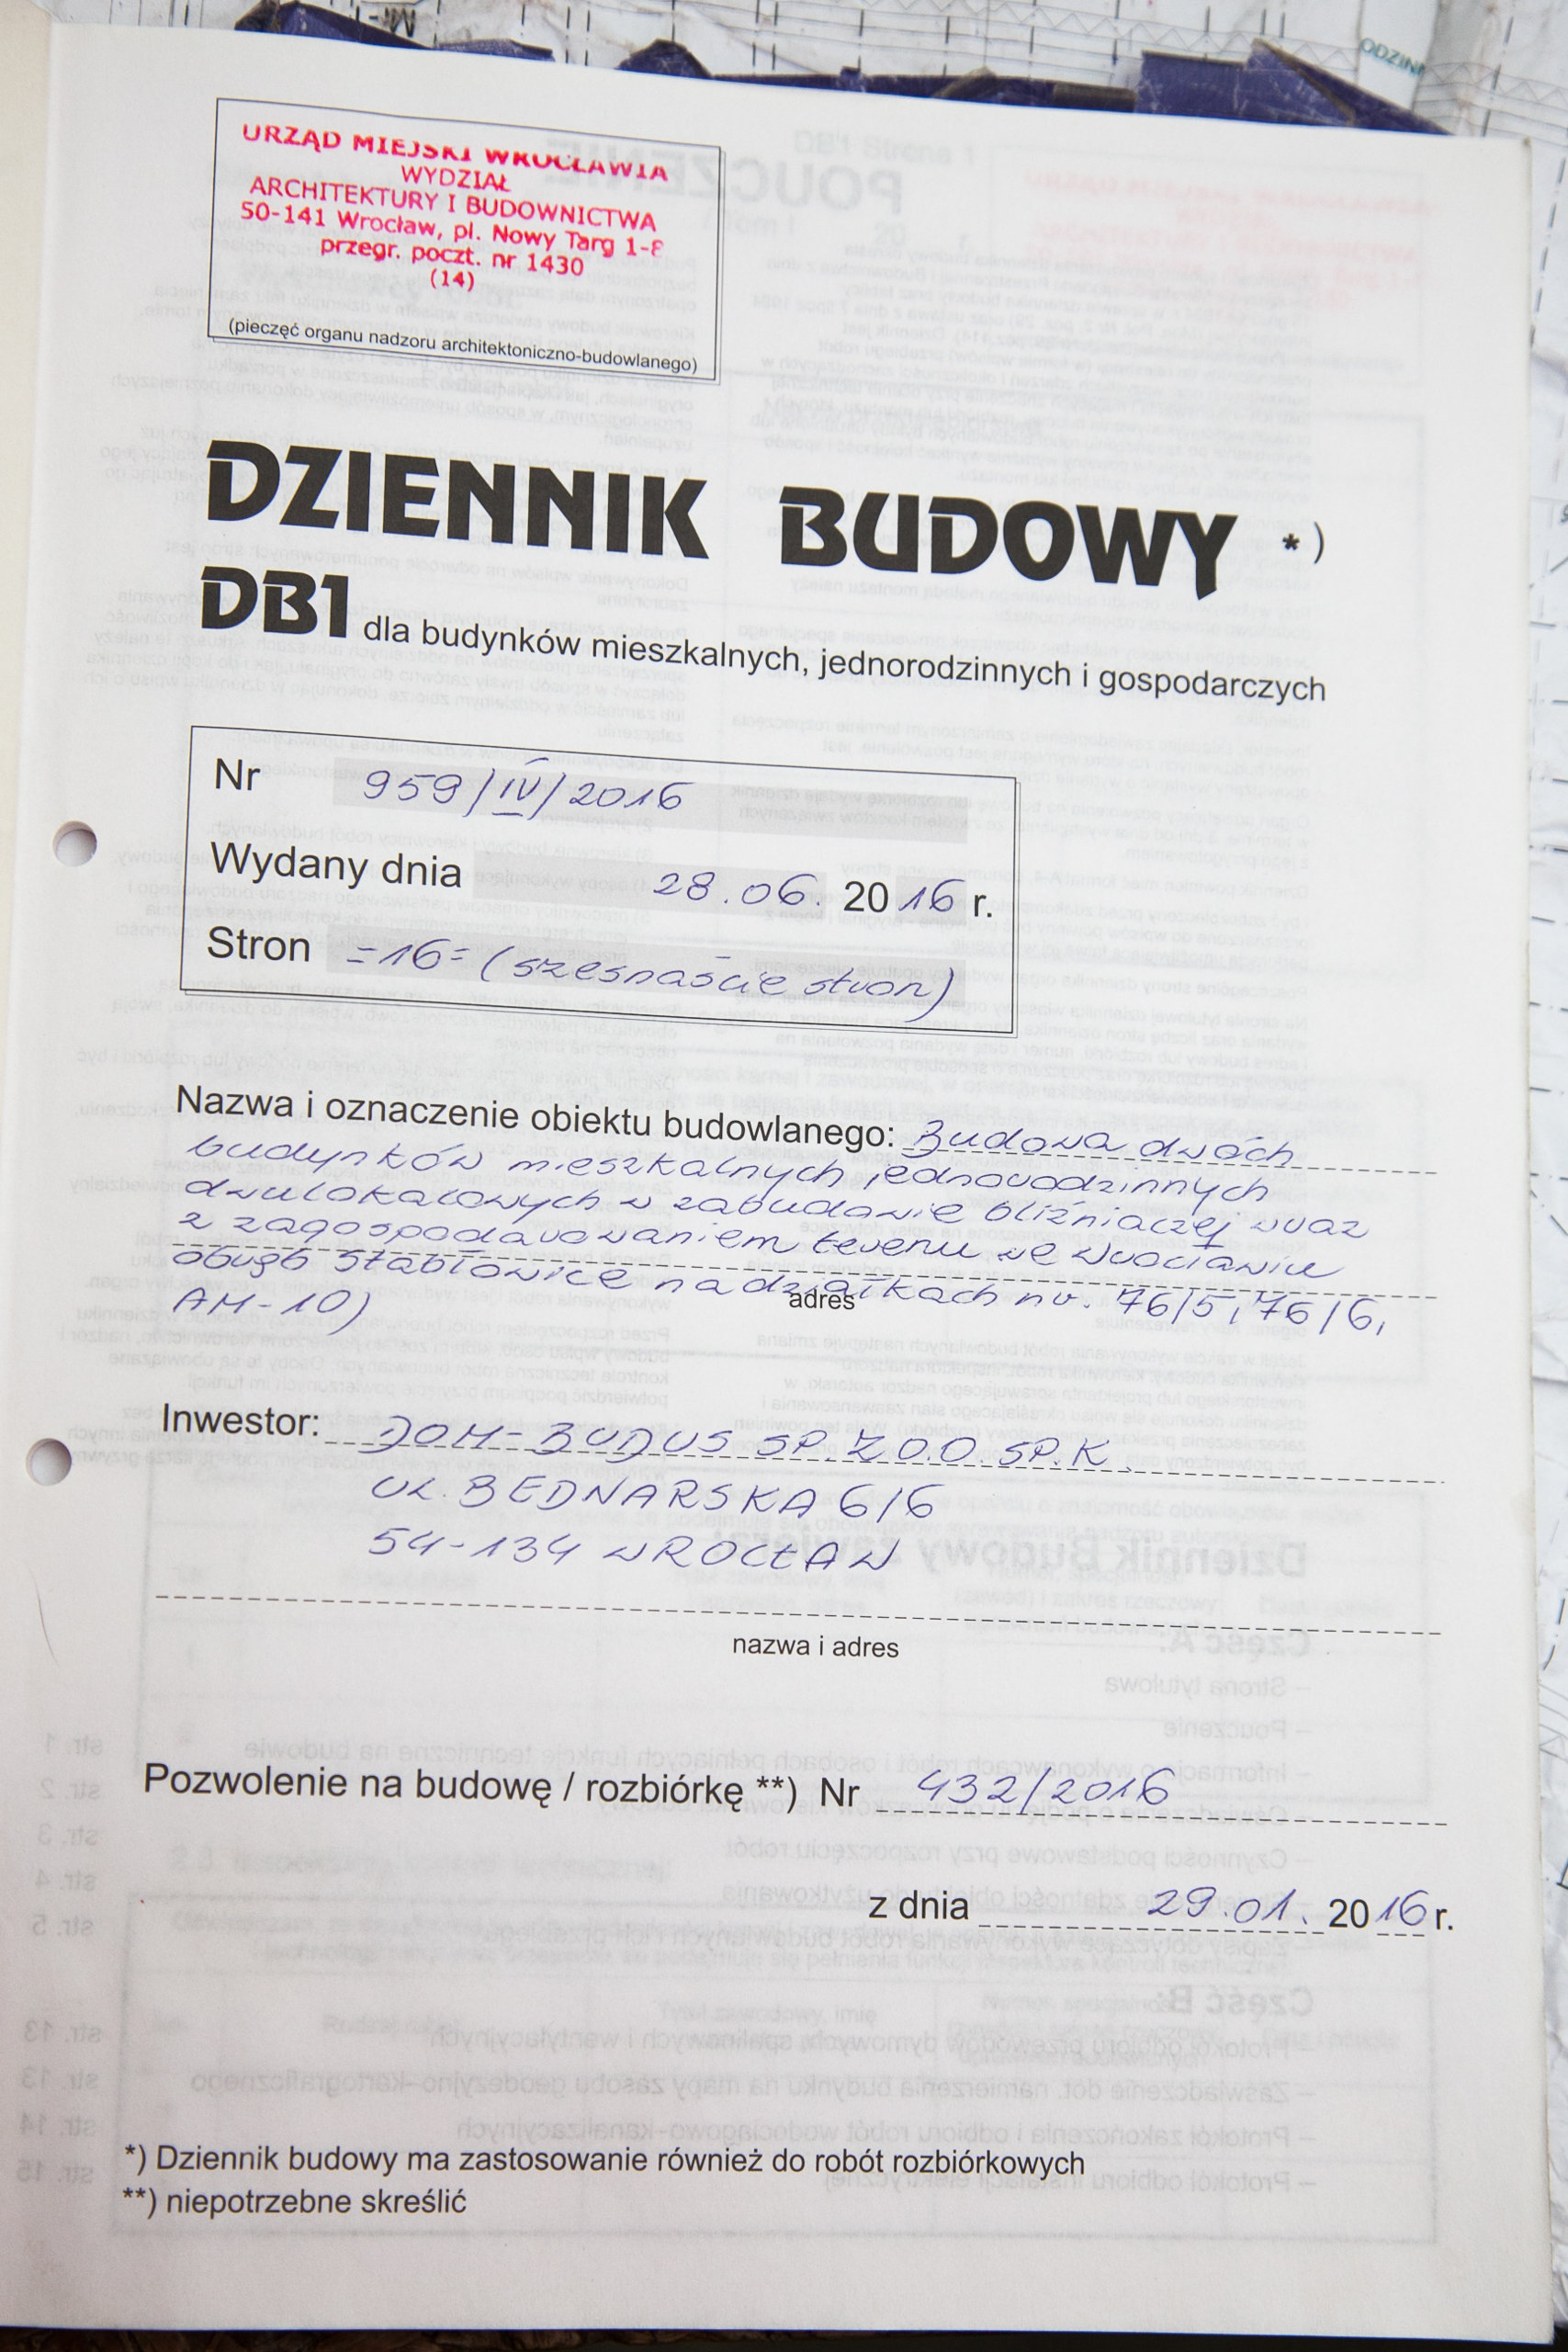 URZĄD MIEJSKI WROCŁAWIA
WYDZIAŁ
ARCHITEKTURY I BUDOWNICTWA
50-141 Wrocław, pl. Nowy Targ 1-8
przegr. poczt. nr 1430
(14)
(pieczęć organu nadzoru architektoniczno-budowlanego)
DZIENNIK BUDOWY *)
DB1 dla budynków mieszkalnych, jednorodzinnych i gospodarczych
Nr 959/IV/2016
Wydany dnia 28.06. 2016 r.
Stron =16= (szesnaście stron)
Nazwa i oznaczenie obiektu budowlanego: Budowa dwóch
budynków mieszkalnych jednorodzinnych
dwulokalowych w zabudowie bliźniaczej wraz
z zagospodarowaniem terenu we Wrocławiu
obręb Stabłowice na działkach nr. 76/5, 76/6,
adres
AM-10)
Inwestor: DOM-BUDUS SP. Z O.O. SP.K.
UL. BEDNARSKA 6/6
54-134 WROCŁAW
nazwa i adres
Pozwolenie na budowę / rozbiórkę **) Nr 432/2016
z dnia 29.01. 2016 r.
*) Dziennik budowy ma zastosowanie również do robót rozbiórkowych
**) niepotrzebne skreślić